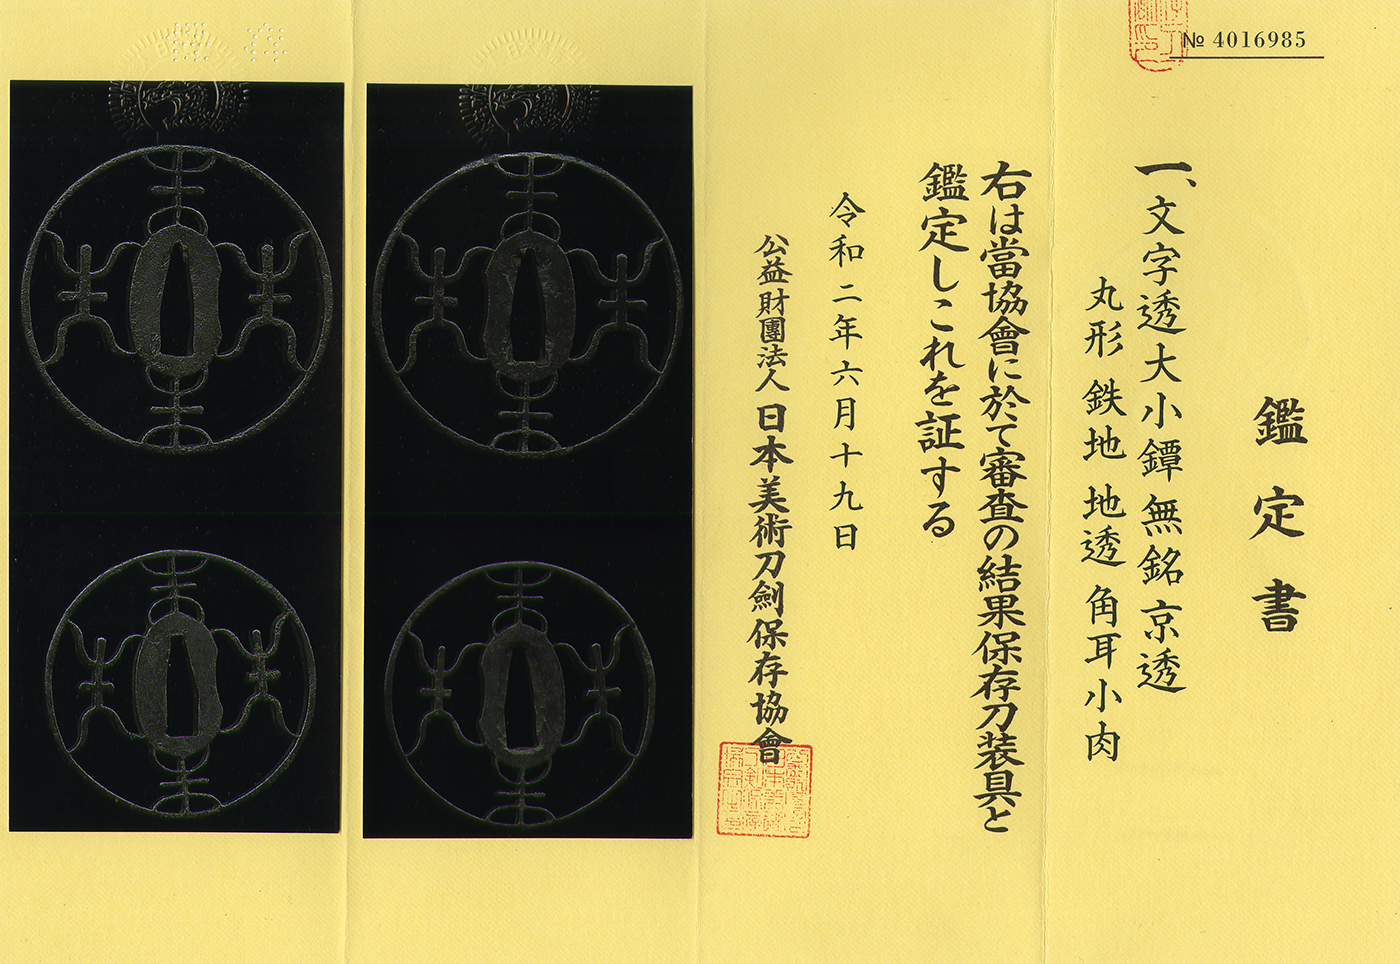 № 4016985
鑑定書
一、文字透大小鐔 無銘 京透
丸形 鉄地 地透 角耳小肉
右は當協會に於て審査の結果保存刀装具と
鑑定しこれを証する
令和二年六月十九日
公益財團法人 日本美術刀劍保存協會